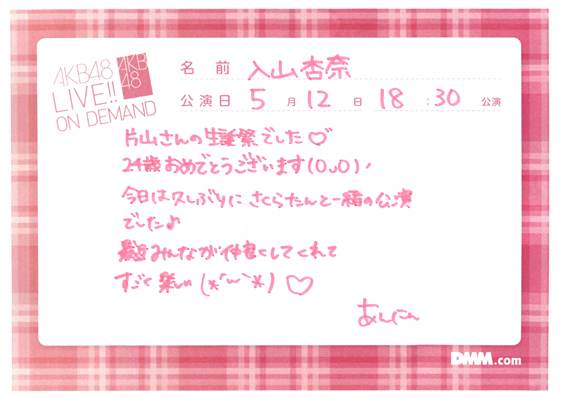 AKB48
LIVE!!
ON DEMAND
AKB
48
名前 入山杏奈
公演日 5月12日 18:30公演
片山さんの生誕祭でした♡
24歳おめでとうございます(0ᴗ0)ノ
今日は久しぶりにさくらたんと一緒の公演
でした♪
最近みんなが仲良くしてくれて
すごく楽しい (*´~`*) ♡
あんにん
DMM.com